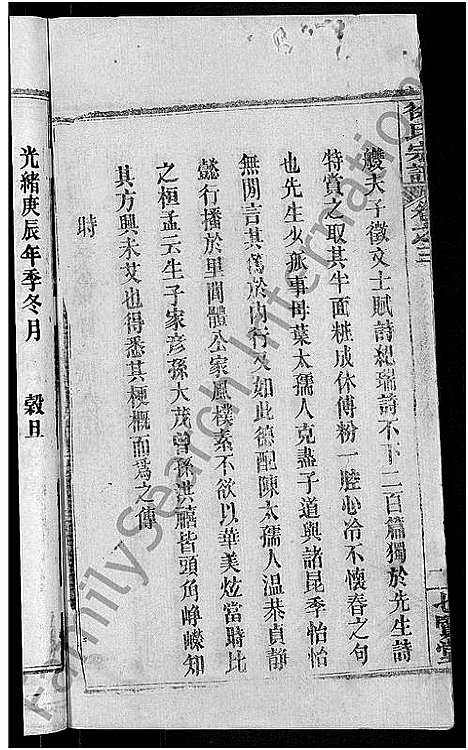 艭夫子徵文士賦詩紀瑞詩不下二百篇獨於先生詩
特賞之取其半面粧成休傅粉一腔心冷不懷春之句
也先生少孤事母葉太孺人克盡子道與諸昆季怡怡
無閒言其篤於內行又如此德配陳太孺人溫恭貞靜
懿行播於里閭體公家風樸素不欲以華美炫當時比
之桓孟云生子家彥孫大茂曾孫洪禧皆頭角崢嶸知
其方興未艾也得悉其梗概而爲之傳
時
光緒庚辰年季冬月 穀旦
徐氏宗譜 卷之三
七賢堂
FamilySearch International